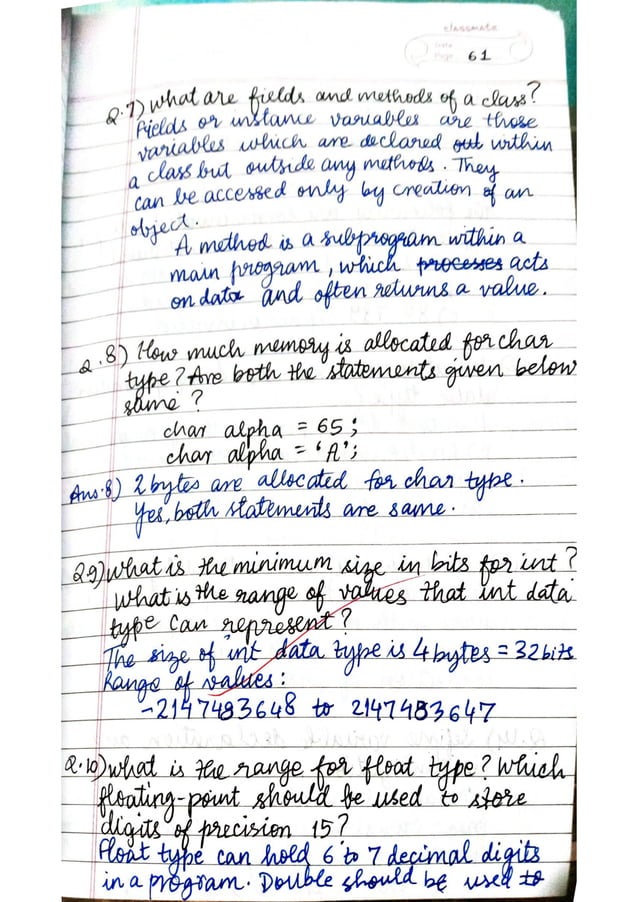 classmate
Date
Page 61
Q.7) what are fields and methods of a class?
Fields or instance variables are those
variables which are declared out within
a class but outside any methods. They
can be accessed only by creation of an
object.
A method is a subprogram within a
main program, which processes acts
on data and often returns a value.
Q.8) How much memory is allocated for char
type? Are both the statements given below
same?
char alpha = 65;
char alpha = 'A';
Ans.8) 2 bytes are allocated for char type.
Yes, both statements are same.
Q.9) what is the minimum size in bits for int?
What is the range of values that int data
type can represent?
The size of int data type is 4 bytes = 32 bits
Range of values:
-2147483648 to 2147483647
Q.10) what is the range for float type? Which
floating-point should be used to store
digits of precision 15?
Float type can hold 6 to 7 decimal digits
in a program. Double should be used to